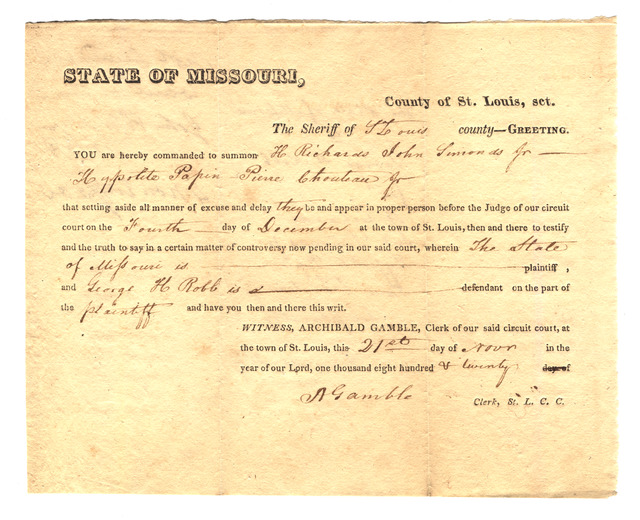 STATE OF MISSOURI,
County of St. Louis, sct.
The Sheriff of St Louis county—GREETING.
YOU are hereby commanded to summon H Richards John Simonds Jr —
Hypolite Papin Pierre Chouteau Jr
that setting aside all manner of excuse and delay they be and appear in proper person before the Judge of our circuit
court on the Fourth day of December at the town of St. Louis, then and there to testify
and the truth to say in a certain matter of controversy now pending in our said court, wherein The State
of Missouri is plaintiff,
and George H Robb is a defendant on the part of
the plaintiff and have you then and there this writ.
WITNESS, ARCHIBALD GAMBLE, Clerk of our said circuit court, at
the town of St. Louis, this 21st day of Novr in the
year of our Lord, one thousand eight hundred & twenty day of
A Gamble Clerk, St. L. C. C.